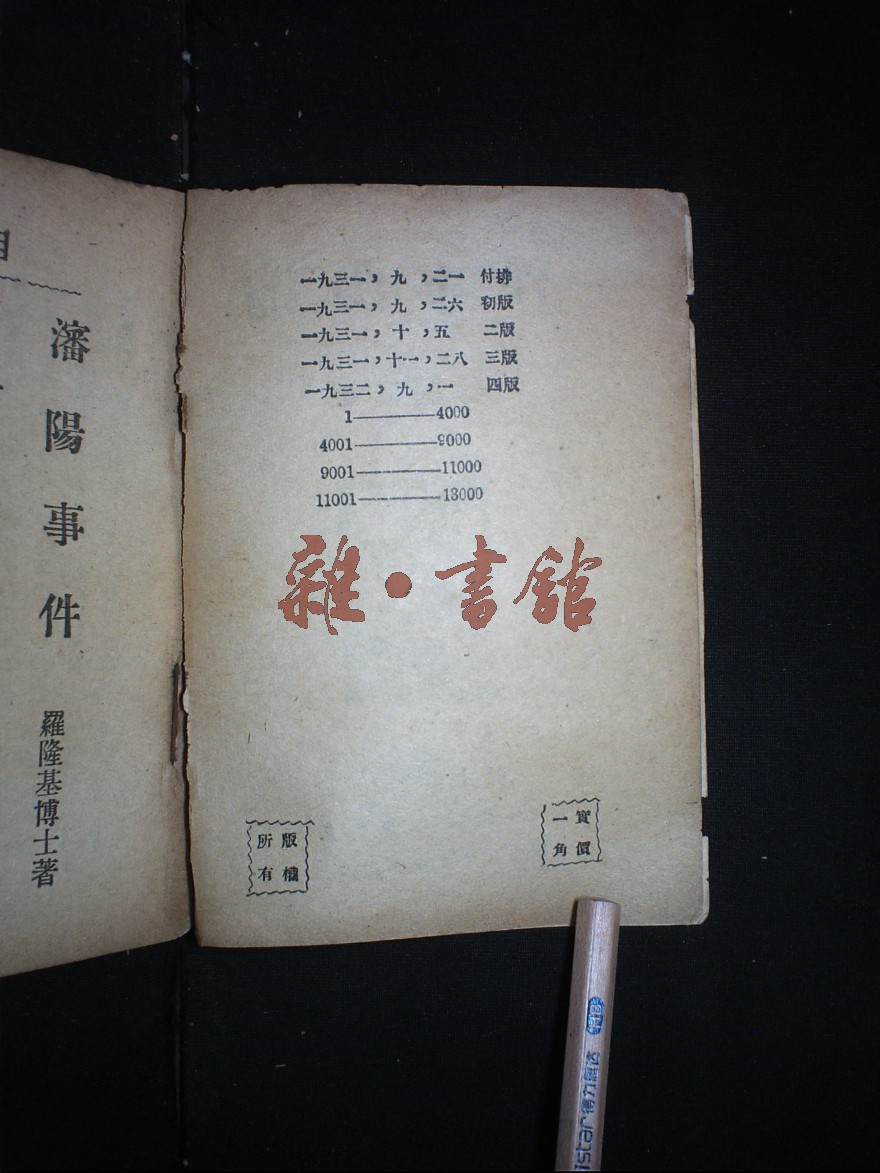 一九三一，九，二一　付排
一九三一，九，二六　初版
一九三一，十，五　二版
一九三一，十一，二八　三版
一九三二，九，一　四版
1————4000
4001————9000
9001————11000
11001————13000
雜·書館
實價
一角
版權
所有
瀋陽事件
羅隆基博士著
istar 得力